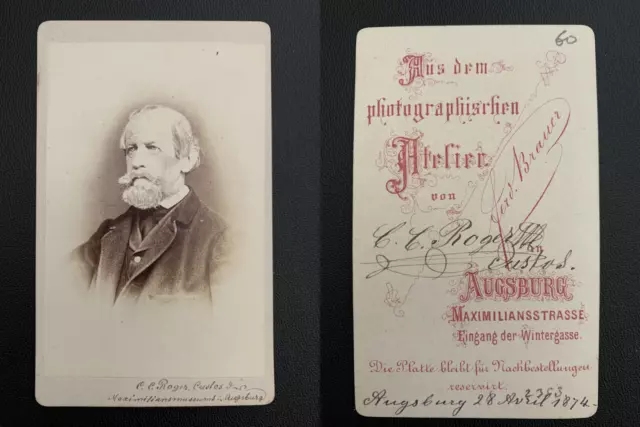 C. C. Roger, Custos
Maximiliansmuseum Augsburg
60
Aus dem
photographischen
Atelier
von
Ferd. Brauer
C. C. Roger
Custos.
in
AUGSBURG
MAXIMILIANSSTRASSE
Eingang der Wintergasse.
Die Platte bleibt für Nachbestellungen
reservirt.
2363
Augsburg 28 April 1874